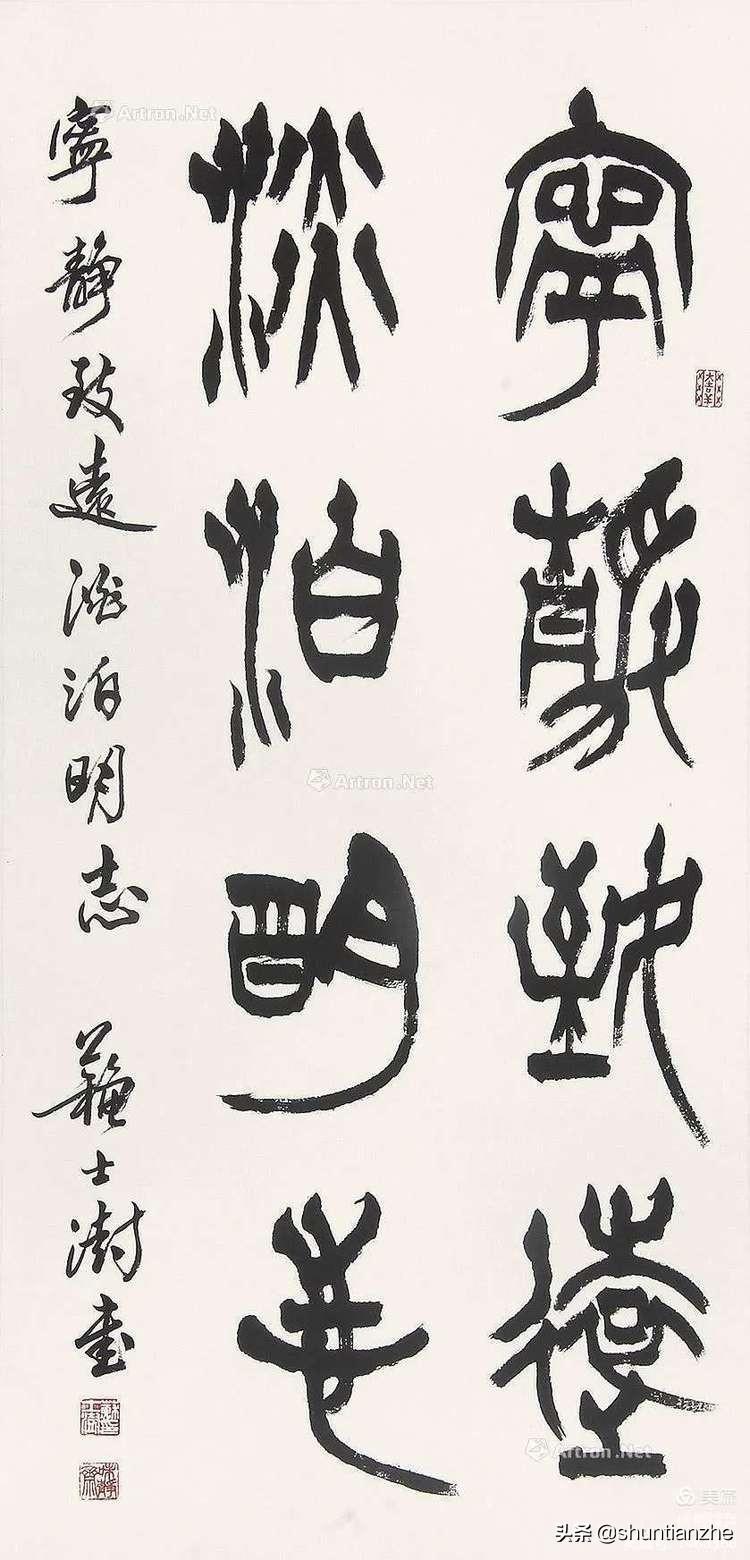 寧靜致遠
淡泊明志
寧靜致遠澹泊明志 蘇士澍書
大吉羊
Artron.Net
Artron.Net
Artron.Net
美篇
头条 @shuntianzhe